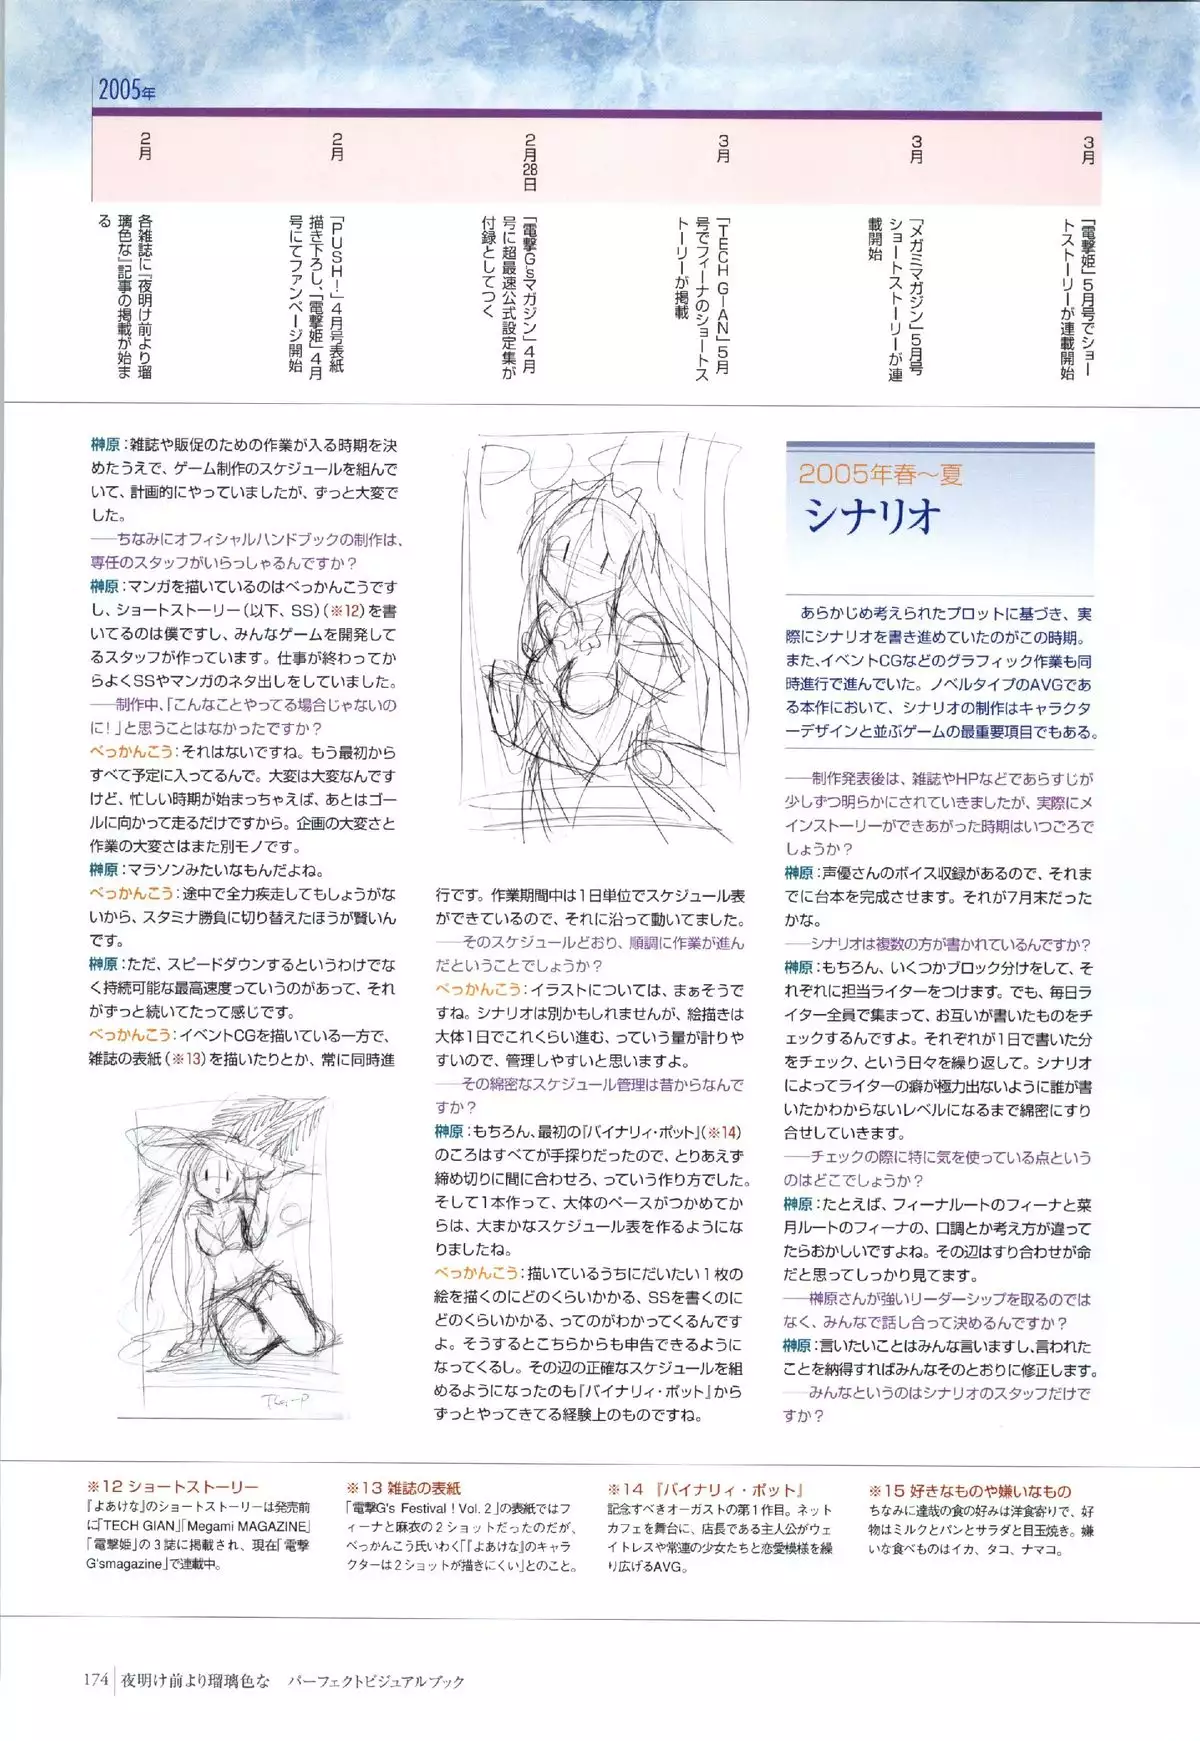 2005年
2月
各雑誌に『夜明け前より瑠
璃色な』記事の掲載が始ま
る
2月
「PUSH！」4月号表紙
描き下ろし、「電撃姫」4月
号にてファンページ開始
2月28日
「電撃G'sマガジン」4月
号に超最速公式設定集が
付録としてつく
3月
「TECH GIAN」5月
号でフィーナのショートス
トーリーが掲載
3月
「メガミマガジン」5月号
ショートストーリーが連
載開始
3月
「電撃姫」5月号でショー
トストーリーが連載開始
榊原：雑誌や販促のための作業が入る時期を決
めたうえで、ゲーム制作のスケジュールを組んで
いて、計画的にやっていましたが、ずっと大変で
した。
――ちなみにオフィシャルハンドブックの制作は、
専任のスタッフがいらっしゃるんですか？
榊原：マンガを描いているのはべっかんこうです
し、ショートストーリー（以下、SS）（※12）を書
いてるのは僕ですし、みんなゲームを開発して
るスタッフが作っています。仕事が終わってか
らよくSSやマンガのネタ出しをしていました。
――制作中、「こんなことやってる場合じゃないの
に！」と思うことはなかったですか？
べっかんこう：それはないですね。もう最初から
すべて予定に入ってるんで。大変は大変なんです
けど、忙しい時期が始まっちゃえば、あとはゴー
ルに向かって走るだけですから。企画の大変さと
作業の大変さはまた別モノです。
榊原：マラソンみたいなもんだよね。
べっかんこう：途中で全力疾走してもしょうがな
いから、スタミナ勝負に切り替えたほうが賢いん
です。
榊原：ただ、スピードダウンするというわけでな
く持続可能な最高速度っていうのがあって、それ
がずっと続いてたって感じです。
べっかんこう：イベントCGを描いている一方で、
雑誌の表紙（※13）を描いたりとか、常に同時進
PUSH!!
行です。作業期間中は1日単位でスケジュール表
ができているので、それに沿って動いてました。
――そのスケジュールどおり、順調に作業が進ん
だということでしょうか？
べっかんこう：イラストについては、まぁそうで
すね。シナリオは別かもしれませんが、絵描きは
大体1日でこれくらい進む、っていう量が計りや
すいので、管理しやすいと思いますよ。
――その綿密なスケジュール管理は昔からなんで
すか？
榊原：もちろん、最初の『バイナリィ・ポット』（※14）
のころはすべてが手探りだったので、とりあえず
締め切りに間に合わせろ、っていう作り方でした。
そして1本作って、大体のペースがつかめてか
らは、大まかなスケジュール表を作るようにな
りましたね。
べっかんこう：描いているうちにだいたい1枚の
絵を描くのにどのくらいかかる、SSを書くのに
どのくらいかかる、ってのがわかってくるんです
よ。そうするとこちらからも申告できるように
なってくるし。その辺の正確なスケジュールを組
めるようになったのも『バイナリィ・ポット』から
ずっとやってきてる経験上のものですね。
2005年春～夏
シナリオ
あらかじめ考えられたプロットに基づき、実
際にシナリオを書き進めていたのがこの時期。
また、イベントCGなどのグラフィック作業も同
時進行で進んでいた。ノベルタイプのAVGであ
る本作において、シナリオの制作はキャラクタ
ーデザインと並ぶゲームの最重要項目でもある。
――制作発表後は、雑誌やHPなどであらすじが
少しずつ明らかにされていきましたが、実際にメ
インストーリーができあがった時期はいつごろで
しょうか？
榊原：声優さんのボイス収録があるので、それま
でに台本を完成させます。それが7月末だった
かな。
――シナリオは複数の方が書かれているんですか？
榊原：もちろん、いくつかブロック分けをして、そ
れぞれに担当ライターをつけます。でも、毎日ラ
イター全員で集まって、お互いが書いたものをチ
ェックするんですよ。それぞれが1日で書いた分
をチェック、という日々を繰り返して。シナリオ
によってライターの癖が極力出ないように誰が書
いたかわからないレベルになるまで綿密にすり
合せしていきます。
――チェックの際に特に気を使っている点という
のはどこでしょうか？
榊原：たとえば、フィーナルートのフィーナと菜
月ルートのフィーナの、口調とか考え方が違って
たらおかしいですよね。その辺はすり合わせが命
だと思ってしっかり見てます。
――榊原さんが強いリーダーシップを取るのでは
なく、みんなで話し合って決めるんですか？
榊原：言いたいことはみんな言いますし、言われた
ことを納得すればみんなそのとおりに修正します。
――みんなというのはシナリオのスタッフだけで
すか？
※12 ショートストーリー
『よあけな』のショートストーリーは発売前
に「TECH GIAN」「Megami MAGAZINE」
「電撃姫」の3誌に掲載され、現在「電撃
G'smagazine」で連載中。
※13 雑誌の表紙
「電撃G's Festival！Vol. 2」の表紙ではフ
ィーナと麻衣の2ショットだったのだが、
べっかんこう氏いわく「『よあけな』のキャラ
クターは2ショットが描きにくい」とのこと。
※14 『バイナリィ・ポット』
記念すべきオーガストの第1作目。ネット
カフェを舞台に、店長である主人公がウェ
イトレスや常連の少女たちと恋愛模様を繰
り広げるAVG。
※15 好きなものや嫌いなもの
ちなみに達哉の食の好みは洋食寄りで、好
物はミルクとパンとサラダと目玉焼き。嫌
いな食べものはイカ、タコ、ナマコ。
174 夜明け前より瑠璃色な パーフェクトビジュアルブック